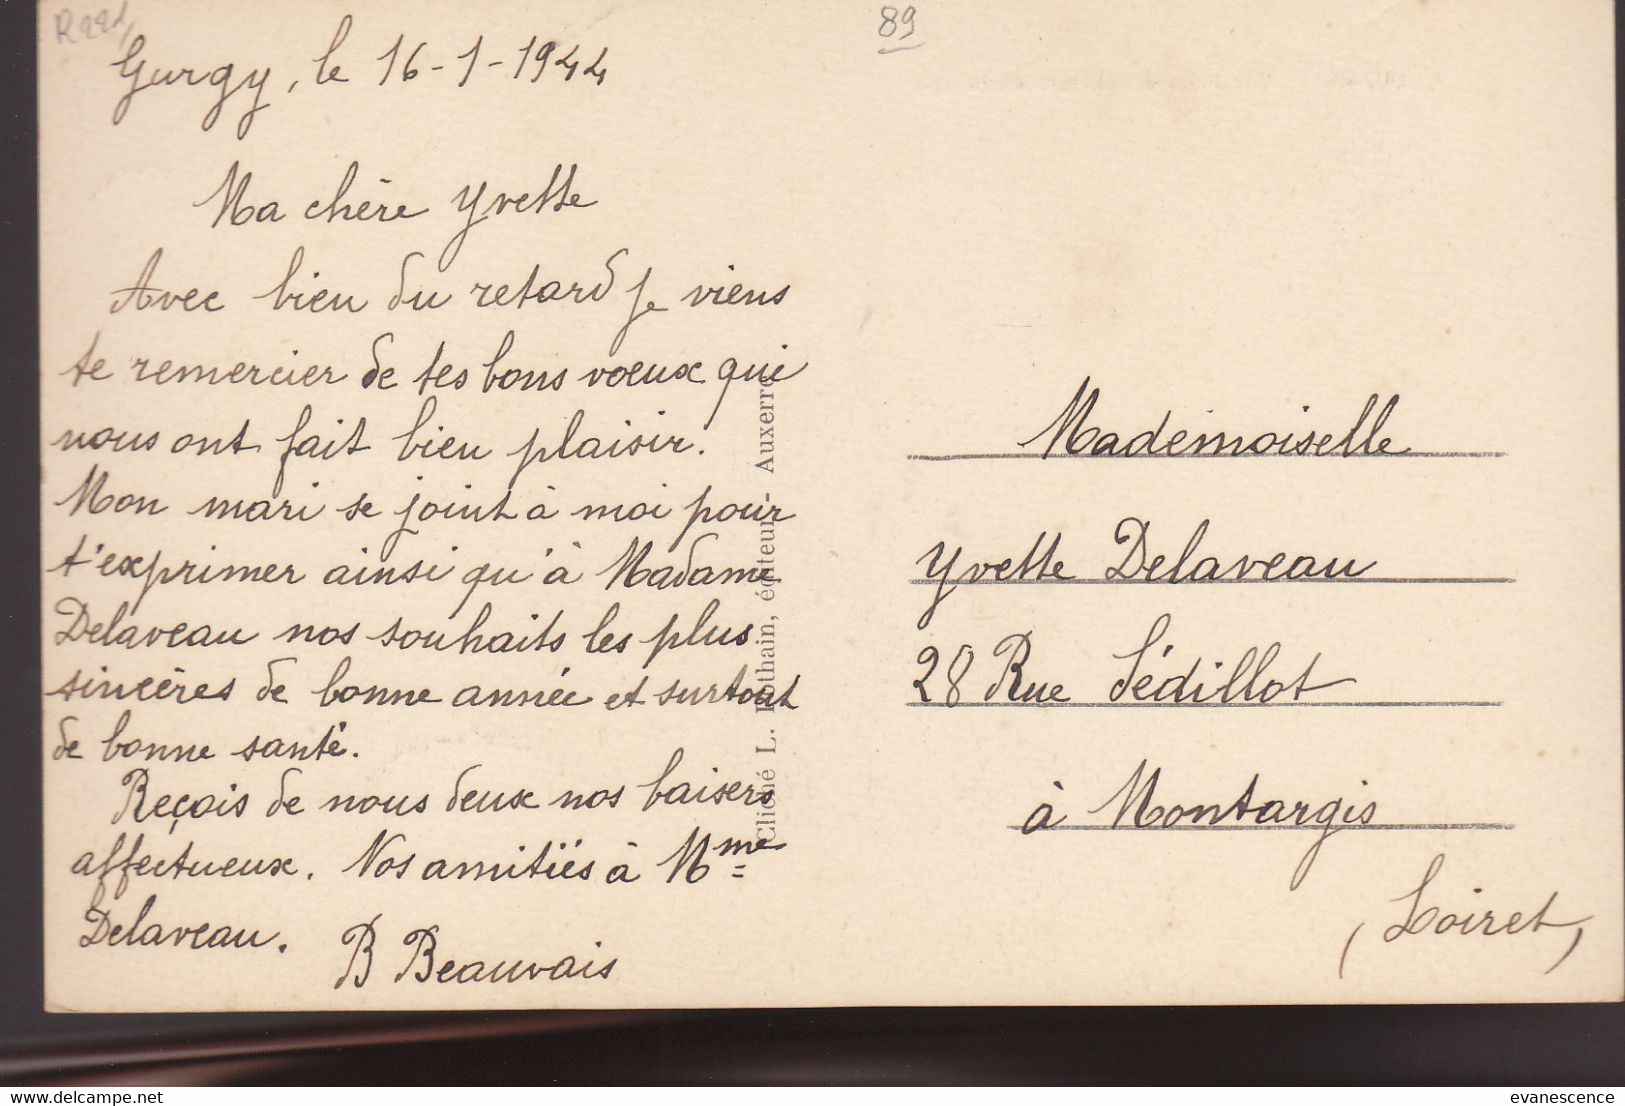 89
Gurgy, le 16-1-1944
Ma chère Yvette
Avec bien du retard je viens
te remercier de tes bons voeux qui
nous ont fait bien plaisir.
Mon mari se joint à moi pour
t'exprimer ainsi qu'à Madame
Delaveau nos souhaits les plus
sincères de bonne année et surtout
de bonne santé.
Reçois de nous deux nos baisers
affectueux. Nos amitiés à Mme
Delaveau.
B Beauvais
Cliché L. Rothain, éditeur, Auxerre
Mademoiselle
Yvette Delaveau
28 Rue Sédillot
à Montargis
(Loiret)
delcampe.net
evanescence